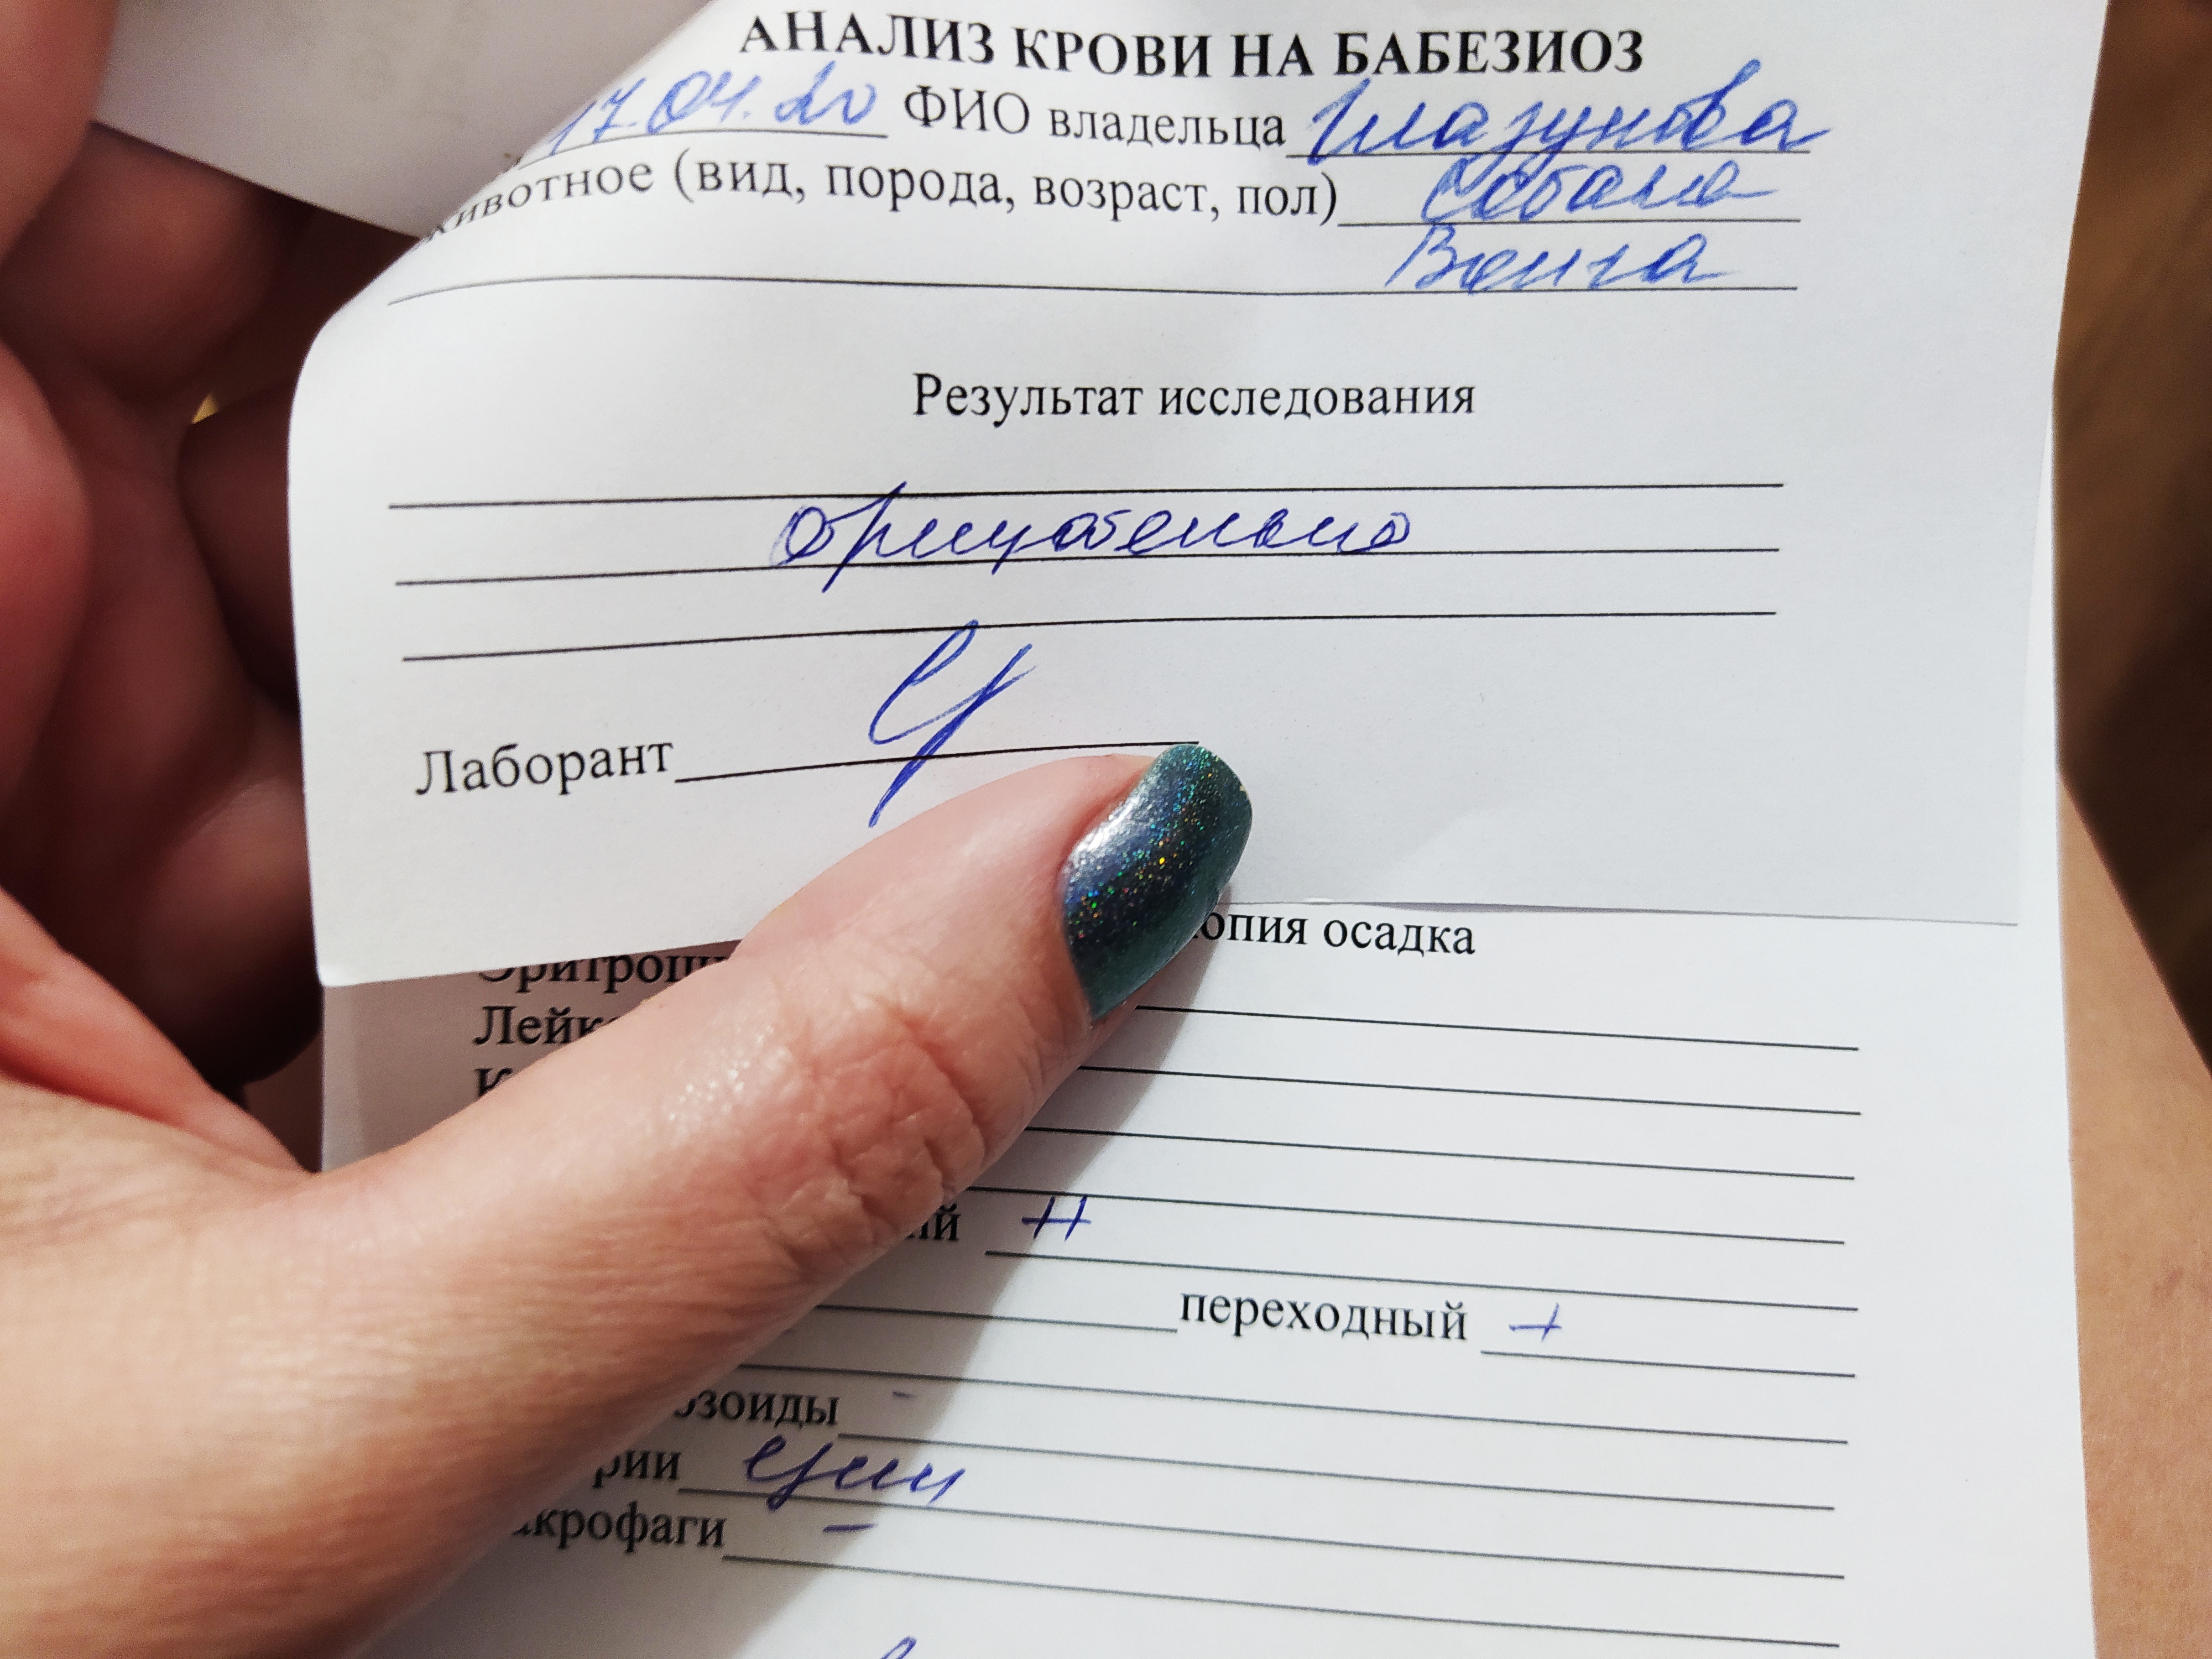 АНАЛИЗ КРОВИ НА БАБЕЗИОЗ
17.04.20 ФИО владельца Глазунова
животное (вид, порода, возраст, пол) Собака
Венга
Результат исследования
отрицательно
Лаборант
опия осадка
Эритроци
Лейк
К
ий ++
переходный +
озоиды -
рии един
акрофаги -